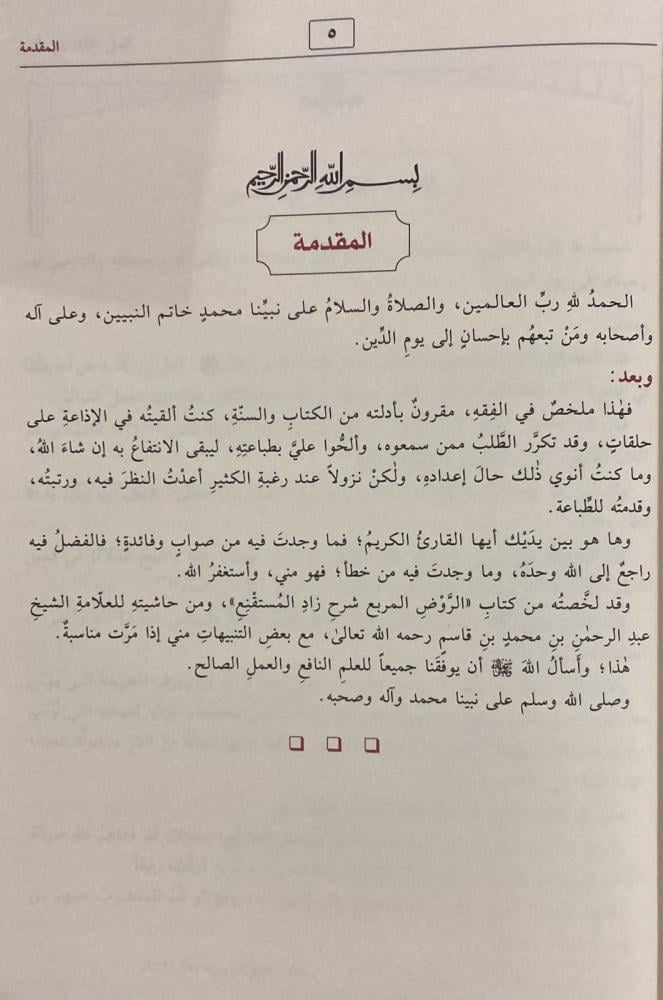 المقدمة
٥
بسم الله الرحمن الرحيم
المقدمة
الحمدُ للهِ ربِّ العالمين، والصلاةُ والسلامُ على نبيِّنا محمدٍ خاتم النبيين، وعلى آله
وأصحابه ومَنْ تبعهُم بإحسانٍ إلى يومِ الدِّين.
وبعد:
فهٰذا ملخصٌ في الفِقهِ، مقرونٌ بأدلته من الكتابِ والسنّةِ، كنتُ ألقيتُه في الإذاعةِ على
حلقاتٍ، وقد تكرَّر الطَّلبُ ممن سمعوه، وألحُّوا عليَّ بطباعتِهِ، ليبقى الانتفاعُ به إن شاءَ اللهُ،
وما كنتُ أنوي ذٰلك حالَ إعدادهِ، ولٰكنْ نزولاً عند رغبةِ الكثيرِ أعدْتُ النظرَ فيه، ورتبتُه،
وقدمتُه للطِّباعة.
وها هو بين يدَيْك أيها القارئُ الكريمُ؛ فما وجدتَ فيه من صوابٍ وفائدةٍ؛ فالفضلُ فيه
راجعٌ إلى الله وحدَهُ، وما وجدتَ فيه من خطأ؛ فهو مني، وأستغفرُ الله.
وقد لخَّصتُه من كتابِ «الرَّوْضِ المربع شرحِ زادِ المُستقْنِعِ»، ومن حاشيتِهِ للعلّامةِ الشيخِ
عبدِ الرحمٰنِ بنِ محمدٍ بنِ قاسمٍ رحمه الله تعالىٰ، مع بعضِ التنبيهاتِ مني إذا مَرَّت مناسبةٌ.
هٰذا؛ وأسألُ اللهَ ﷻ أن يوفِّقَنا جميعاً للعلمِ النافعِ والعملِ الصالح.
وصلى الله وسلم على نبينا محمد وآله وصحبه.